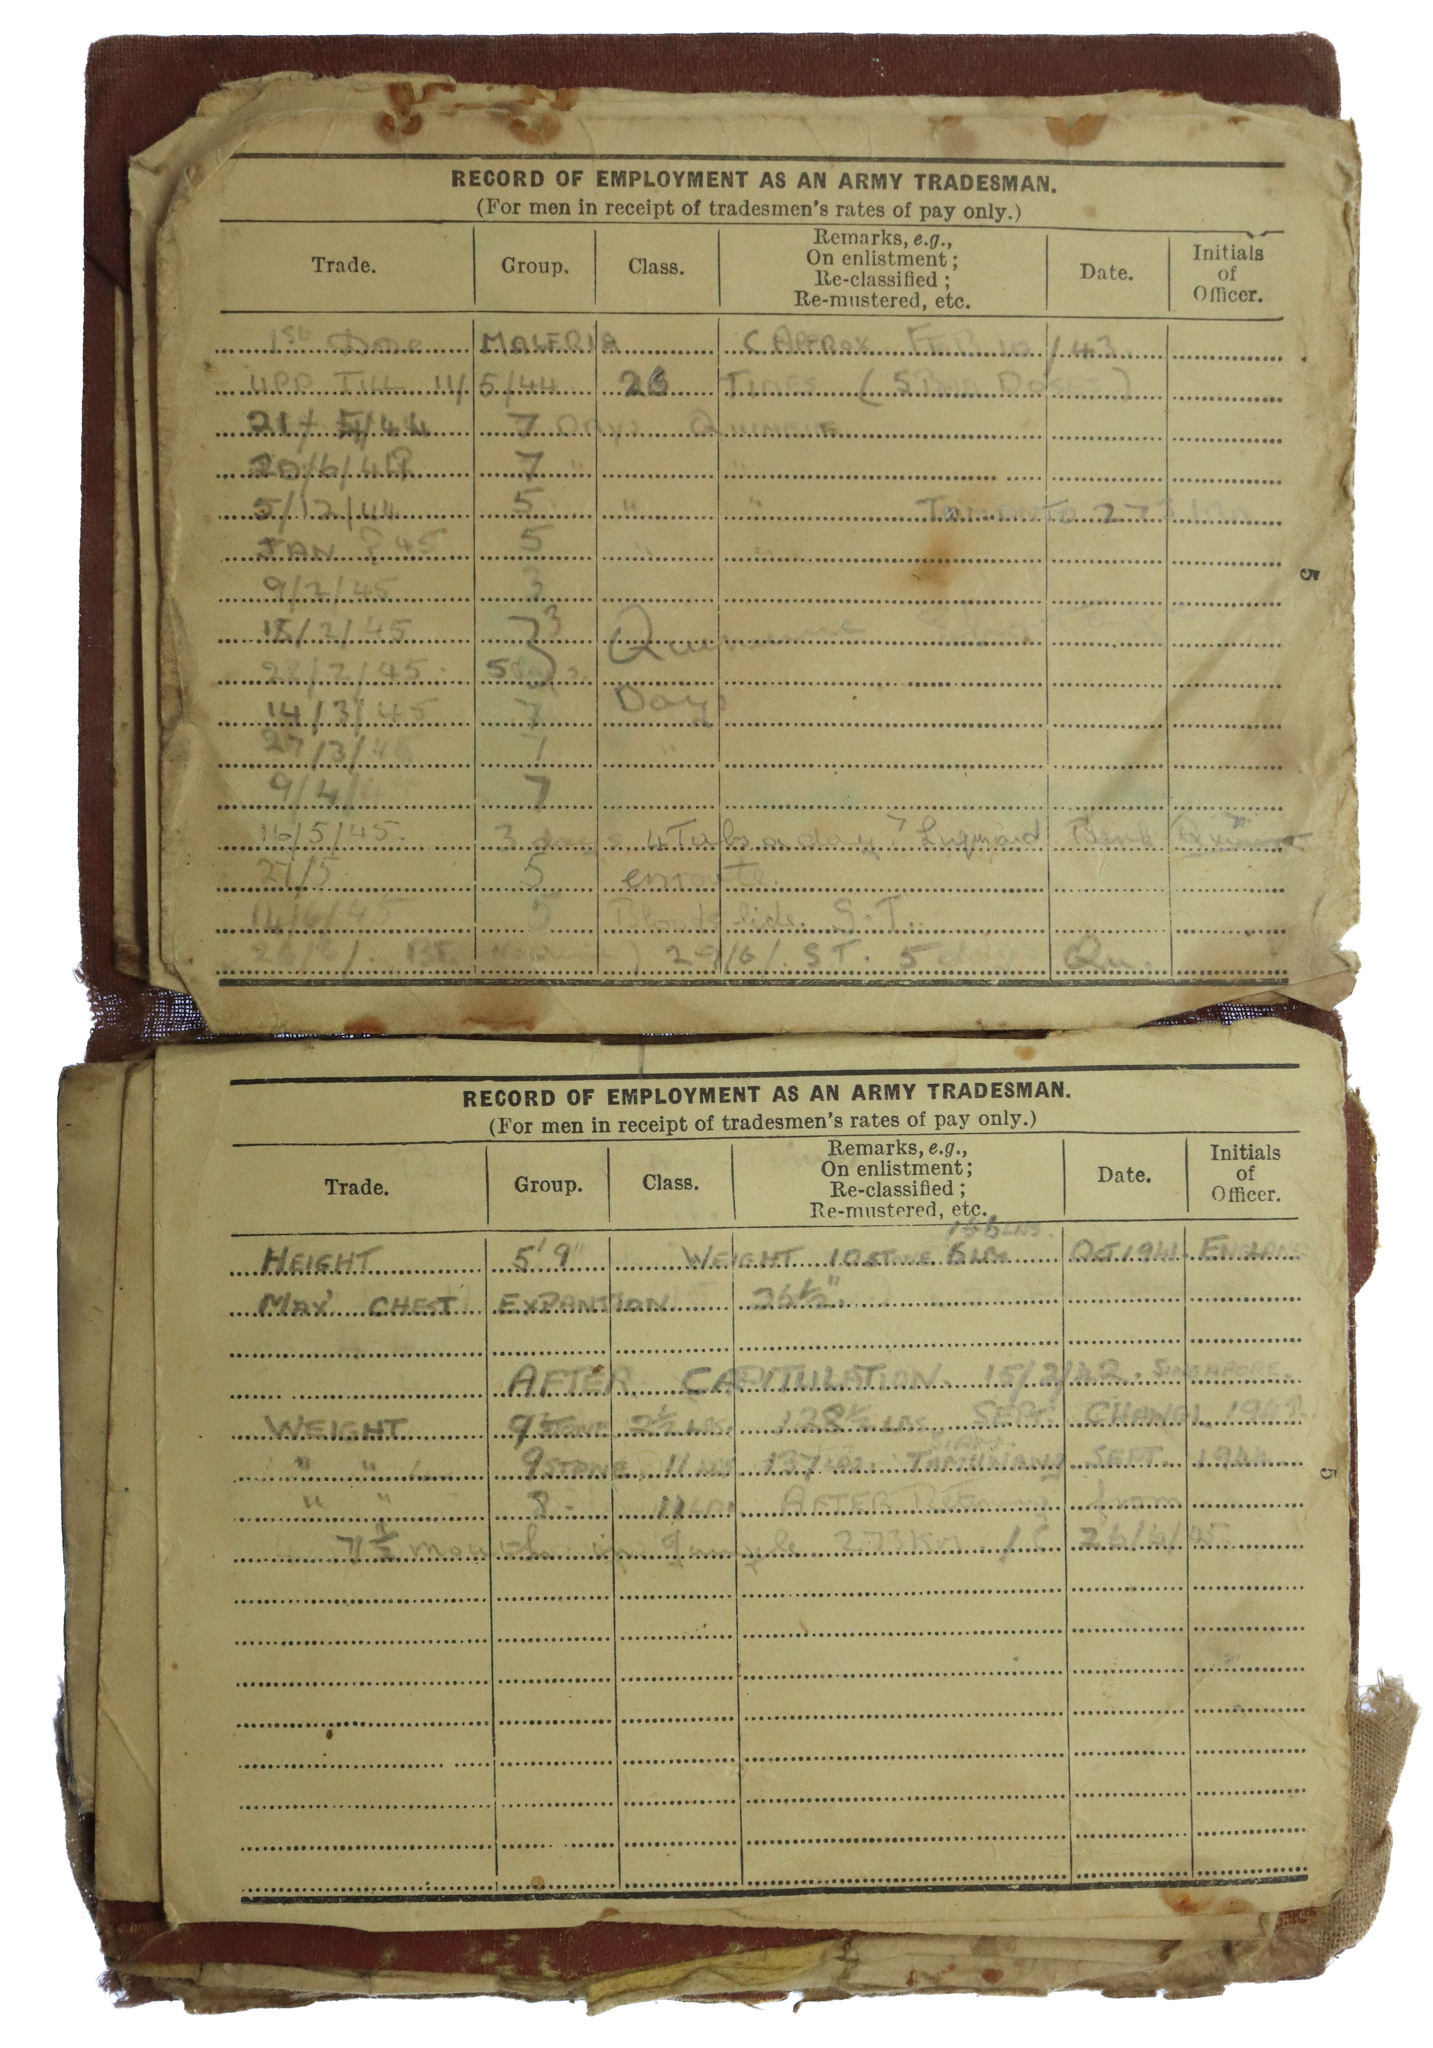 RECORD OF EMPLOYMENT AS AN ARMY TRADESMAN.
(For men in receipt of tradesmen's rates of pay only.)
Trade. Group. Class. Remarks, e.g., On enlistment; Re-classified; Re-mustered, etc. Date. Initials of Officer.
1st MALERIA (APPROX FEB /43
UPP TILL 11/5/44 26 TIMES (5 DOSES)
5/44 7 DAYS QUINNINE
20/6/44 7 " "
5/12/44 5 " "
JAN ? 45 5 " "
9/2/45 3
18/2/45 3 Quinnine
/2/45 5 days
14/3/45 7 Days
27/3/45 7 "
9/4/45 7
16/5/45. 3 days 4 Tabs a day
27/5 5 enroute.
14/6/45 5 Blood slide. S.T.
26/6/. 29/6/. S.T. 5 days Qu.
5
RECORD OF EMPLOYMENT AS AN ARMY TRADESMAN.
(For men in receipt of tradesmen's rates of pay only.)
Trade. Group. Class. Remarks, e.g., On enlistment; Re-classified; Re-mustered, etc. Date. Initials of Officer.
LBS.
HEIGHT 5' 9" WEIGHT 10 STONE 6 LBS OCT 1941. ENGLAND
MAX' CHEST EXPANTION 36½".
AFTER CAPITULATION. 15/2/42. SINGAPORE.
WEIGHT 9 STONE 2½ LBS. 128½ LBS SEPT. CHANGI. 1942
SIAM.
" " 9 STONE 11 LBS 137 LBS. SEPT. 1944
" " 8 - 11 LBS AFTER Returning from
7½ months in Jungle 273 KM. 26/6/45.
5